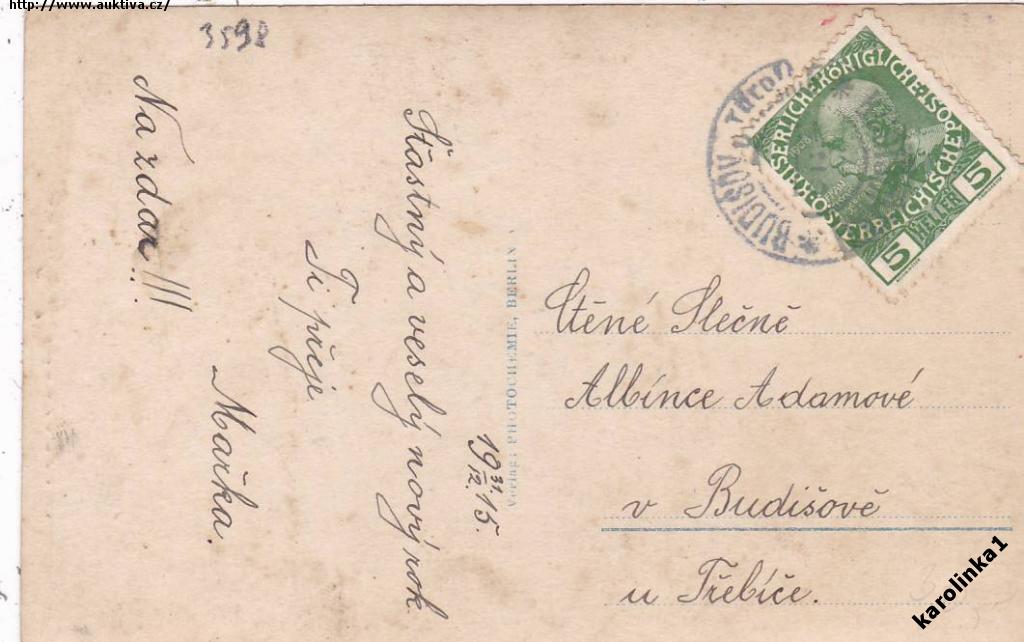 http://www.auktiva.cz/
3598
Šťastný a veselý nový rok
Ti přeje
Mařka.
Na zdar!!!
19 31/12 15.
Verlag: PHOTOCHEMIE, BERLIN
KAISERLICHE KÖNIGLICHE POST
ÖSTERREICHISCHE
5 HELLER 5
BUDIŠOV
Ctěné Slečně
Albínce Adamové
v Budišově
u Třebíče.
karolinka1